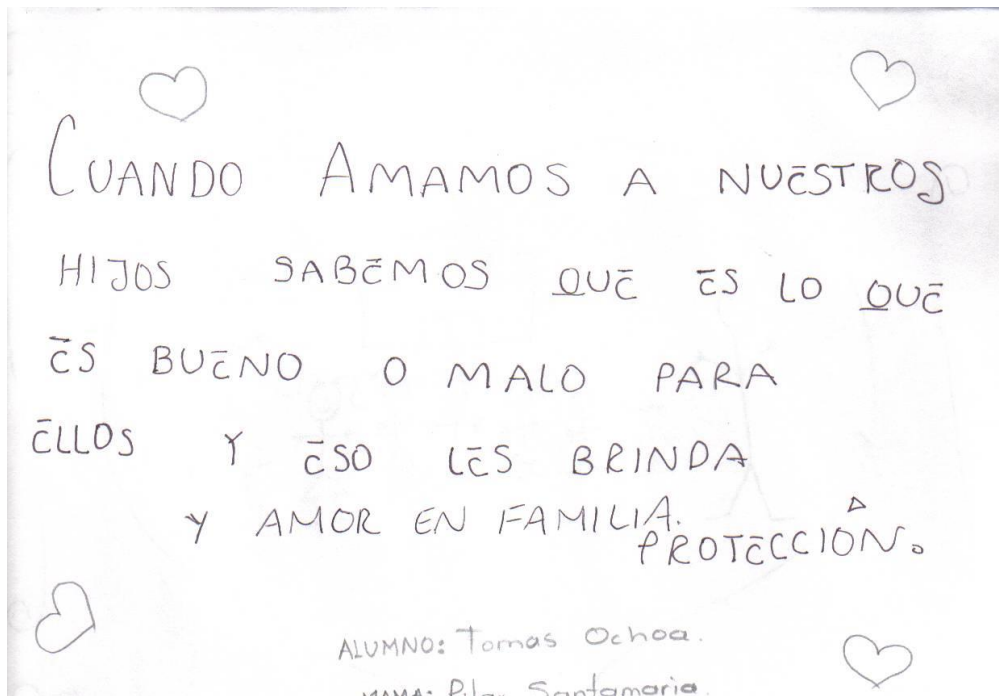 CUANDO AMAMOS A NUESTROS
HIJOS SABEMOS QUE ES LO QUE
ES BUENO O MALO PARA
ELLOS Y ESO LES BRINDA
Y AMOR EN FAMILIA.
PROTECCIÓN.
ALUMNO: Tomas Ochoa.
MAMA: Pilar Santamaria.